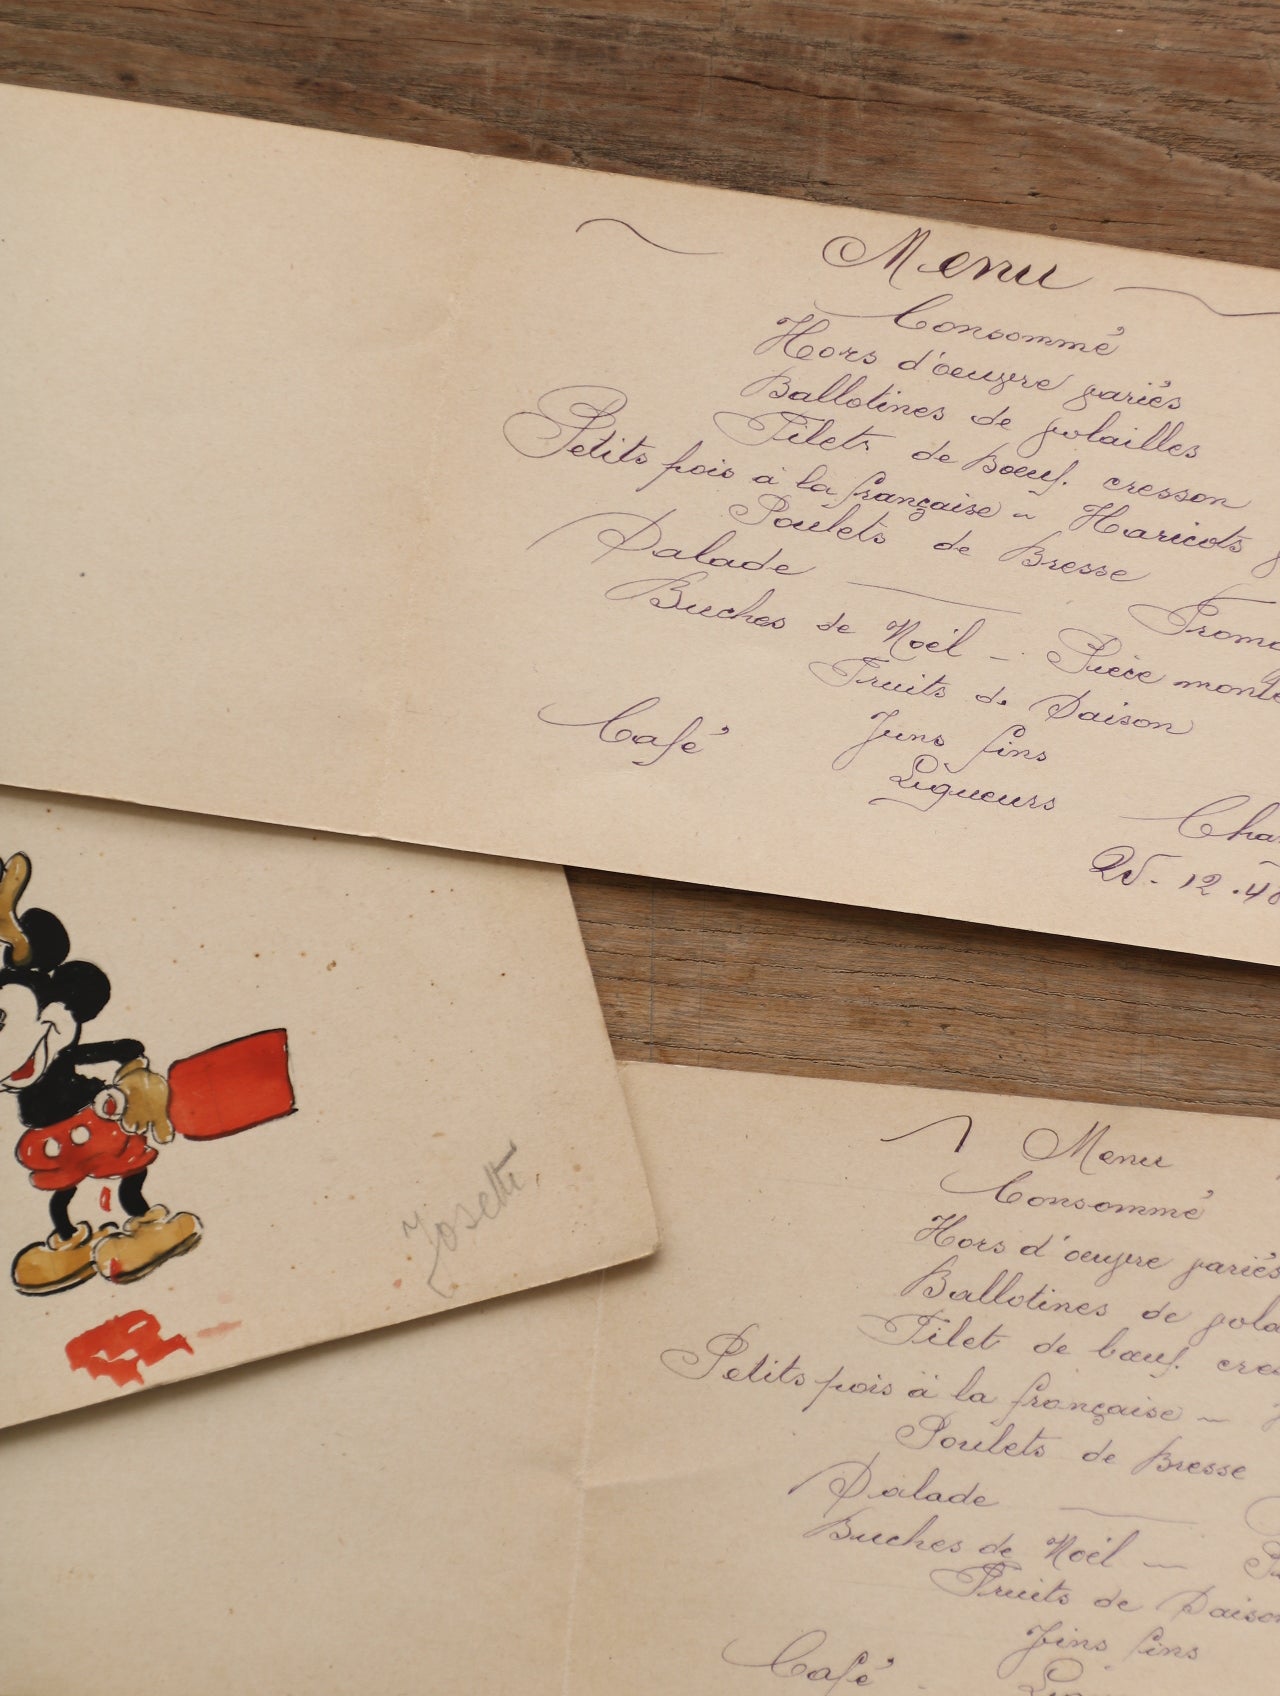 Menu
Consommé
Hors d'oeuvre variés
Ballotines de volailles
Filets de Boeuf cresson
Petits pois à la française - Haricots
Poulets de Bresse
Salade
Buches de Noël - Pièce
Fruits de Saison
Vins fins
Café
Liqueurs
25.12.48
Josette.
Menu
Consommé
Hors d'oeuvre variés
Ballotines de
Filet de boeuf
Petits pois à la française -
Poulets de Bresse
Salade
Buches de Noël -
Fruits de Saison
Vins fins
Café